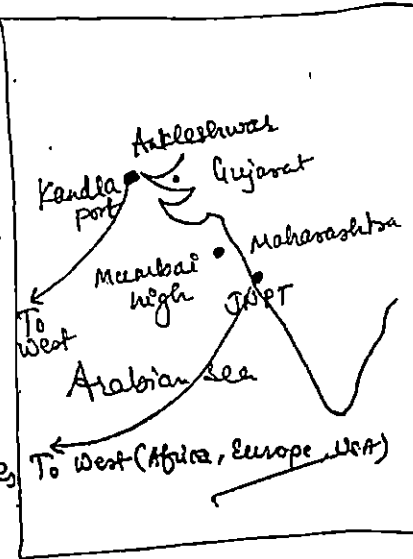 Ankleshwar
Gujarat
Kandla
port
Maharashtra
Mumbai
high
JNPT
To
West
Arabian Sea
To West (Africa, Europe, USA)